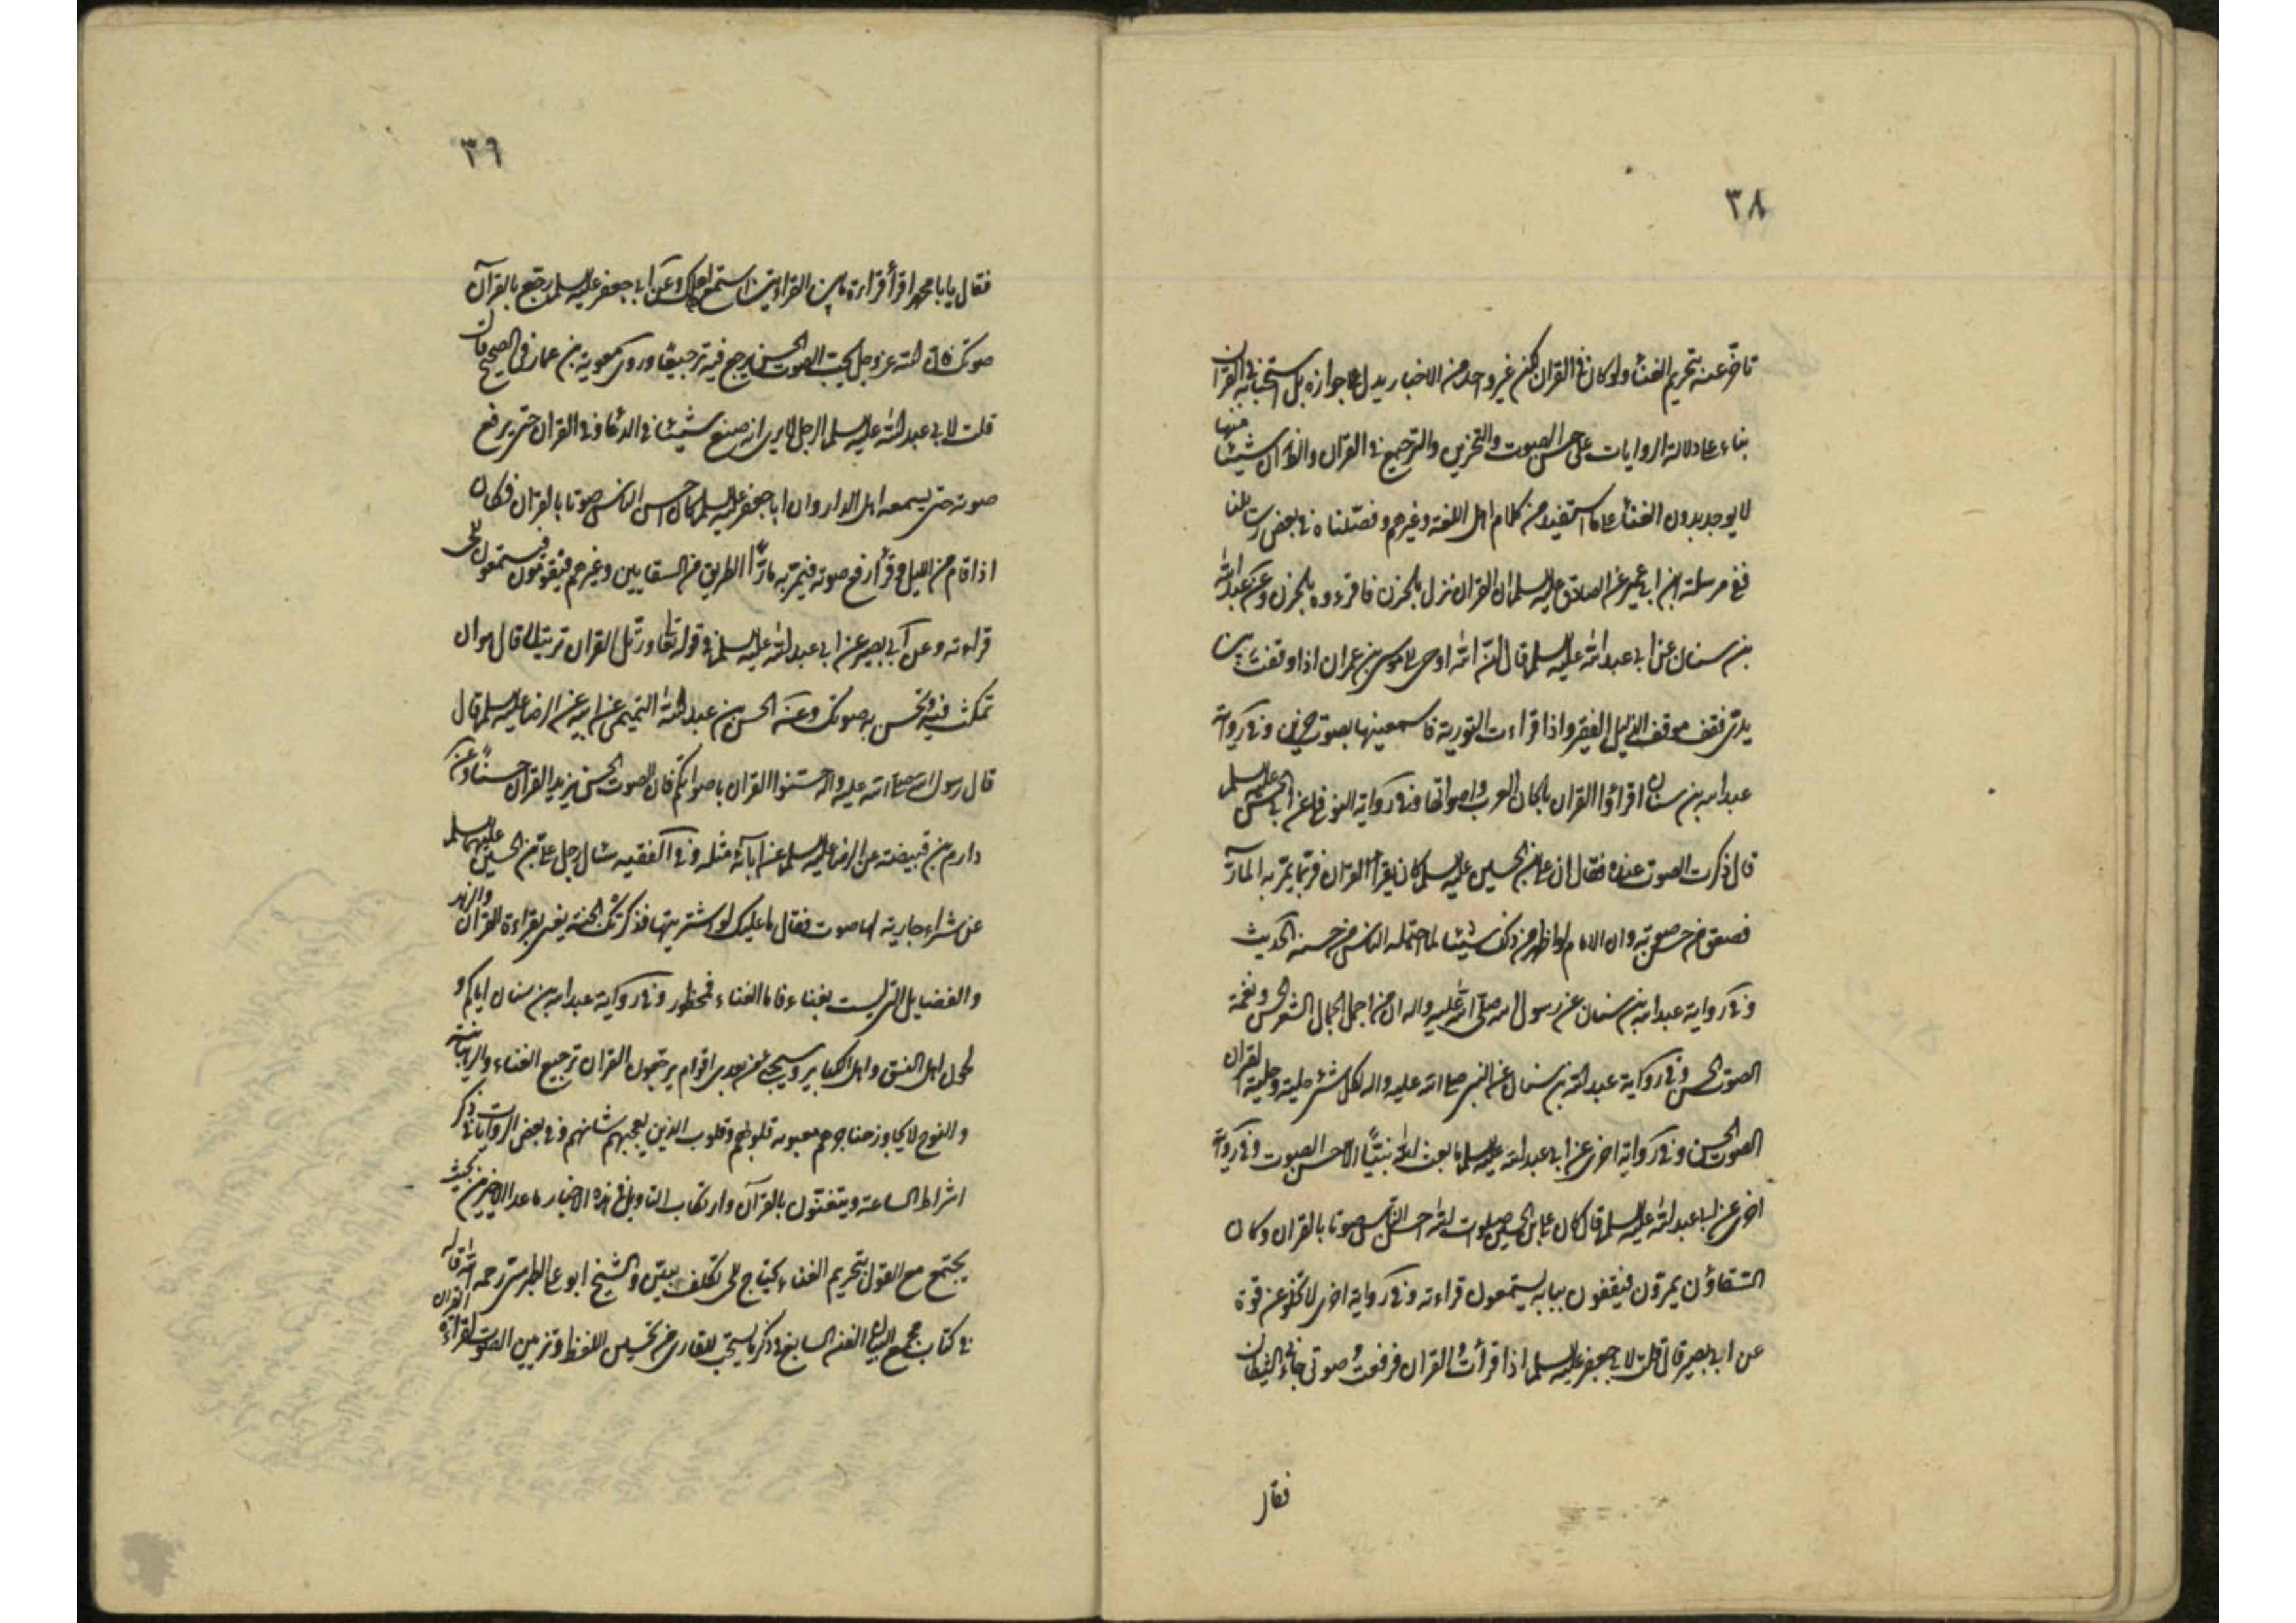 ٣٨
عنه تحريم الغناء ولو كان في القران لكن غير واحد من الاخبار يدل على جوازه بل استحبابه في القران
بناء على دلالة الروايات على حسن الصوت والتحزين والترجيع في القران والظ ان شيئا منها
لا يوجد بدون الغناء على ما استفيد من كلام اهل اللغة وغيرهم وفصلناه في بعض رسائلنا
ففي مرسلة ابن ابي عمير عن الصادق عليه السلم ان القران نزل بالحزن فاقرءوه بالحزن وعن عبدالله
بن سنان عن ابي عبدالله عليه السلم قال انّ الله اوحى الى موسى بن عمران اذا وقفت بين
يديّ فقف موقف الذليل الفقير واذا قراءت التورية فاسمعنيها بصوت حزين وفي رواية
عبدالله بن سنان اقراؤا القران بالحان العرب واصواتها وفي رواية النوفلي عن ابي الحسن عليه السلم
قال ذكرت الصوت عنده فقال ان علي بن الحسين عليه السلم كان يقرأ القران فربّما يمرّ به المارّ
فصعق من حسن صوته وان الامام لو اظهر من ذلك شيئا لما احتمله الناس من حسنه الحديث
وفي رواية عبدالله بن سنان عن رسول الله صلى الله عليه واله ان من اجمل الجمال الشعر الحسن ونغمة
الصوت الحسن وفي رواية عبدالله بن سنان عن النبي صلى الله عليه واله لكل شئ حلية وحلية القران
الصوت الحسن وفي رواية اخرى عن ابي عبدالله عليه السلم ما بعث الله نبيّا الا حسن الصوت وفي رواية
اخرى عن ابي عبدالله عليه السلم قال كان علي بن الحسين صلوات الله احسن الناس صوتا بالقران وكان
السقاؤن يمرّون فيقفون ببابه يستمعون قراءته وفي رواية اخرى لا تخلو عن قوة
عن ابي بصير قال قلت لابي جعفر عليه السلم اذا قرأت القران فرفعت صوتي جاءني الشيطان
فقال
٣٩
فقال يابا محمد اقرأ قراءة ما بين القراءتين تسمع اهلك وعن ابي جعفر عليه السلم رجّع بالقرآن
صوتك فان الله عز وجل يحب الصوت الحسن يرجع فيه ترجيعا وروى معوية بن عمار في الصحيح قال
قلت لابي عبدالله عليه السلم الرجل لا يرى انه صنع شيئا في الدعاء وفي القران حتى يرفع
صوته حتى يسمعه اهل الدار وان ابا جعفر عليه السلم كان احسن الناس صوتا بالقران فكان
اذا قام من الليل وقرأ رفع صوته فيمرّ به مارّ الطريق من السقايين وغيرهم فيقومون فيستمعون الى
قراءته وعن ابي بصير عن ابي عبدالله عليه السلم في قوله تعالى ورتّل القران ترتيلا قال هو ان
تمكث فيه وتحسن به صوتك وعن الحسن بن عبدالله التميمي عن ابيه عن الرضا عليه السلم قال
قال رسول الله صلى الله عليه واله حسّنوا القران باصواتكم فان الصوت الحسن يزيد القران حسنًا وعن
دارم بن قبيصة عن الرضا عليه السلم عن ابائه مثله وفي الفقيه سال رجل علي بن الحسين عليهما السلم
عن شراء جارية لها صوت فقال ما عليك لو اشتريتها فذكرتك الجنة يعني بقراءة القران والزهد
والفضايل التي ليست بغناء فاما الغناء فمحظور وفي رواية عبدالله بن سنان اياكم و
لحون اهل الفسق واهل الكباير وسيجئ من بعدي اقوام يرجّعون القران ترجيع الغناء والرهبانية
والنوح لا يجاوز حناجرهم مقلوبه قلوبهم وقلوب الذين يعجبهم شانهم وفي بعض الروايات في ذكر
اشراط الساعة ويتغنّون بالقرآن وارتكاب التاويل في هذه الاخبار ما عدا الاخيرين بحيث
يجتمع مع القول بتحريم الغناء يحتاج الى تكلف بيّن والشيخ ابو علي الطبرسي رحمه الله قال
في كتاب مجمع البيان الفن السابع في ذكر ما يستحب للقارئ من تحسين اللفظ وتزيين الصوت لقراءة القران